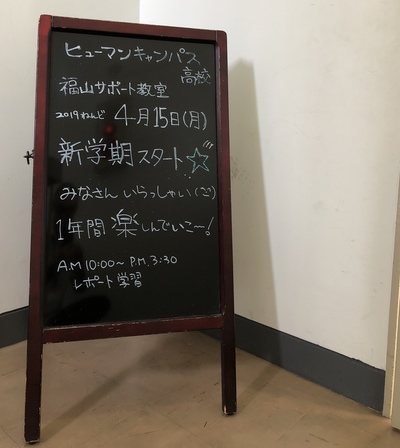 ヒューマンキャンパス
高校
福山サポート教室
2019ねんど 4月15日(月)
新学期スタート☆
みなさん いらっしゃい(^^)
1年間 楽しんでいこ〜!
A.M 10:00〜 P.M. 3:30
レポート学習